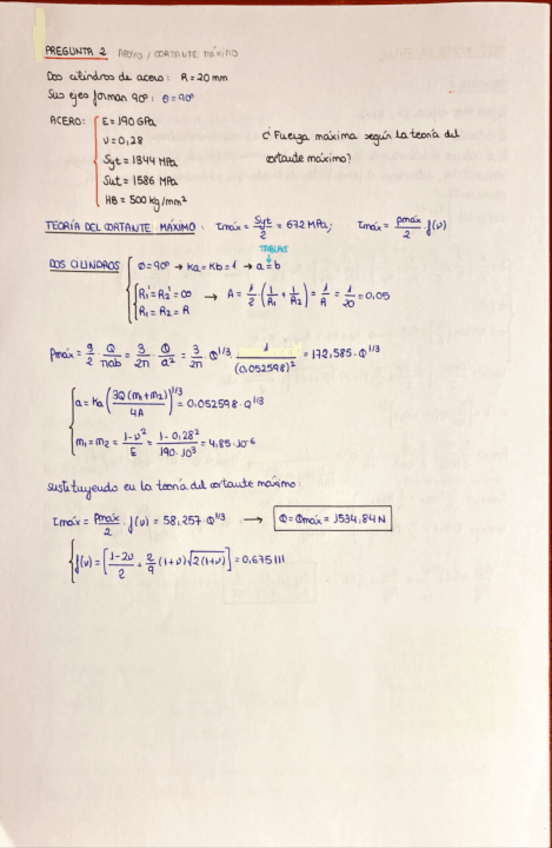 PREGUNTA 2 APOYO / CORTANTE MÁXIMO
Dos cilindros de acero: R = 20 mm
Sus ejes forman 90º: θ=90º
ACERO: E = 190 GPa
ν = 0,28
Syt = 1344 MPa
Sut = 1586 MPa
HB = 500 kg/mm²
¿Fuerza máxima según la teoría del
cortante máximo?
TEORÍA DEL CORTANTE MÁXIMO: τmáx = Syt/2 = 672 MPa; τmáx = pmáx/2 · f(ν)
TABLAS
DOS CILINDROS { θ=90º → Ka = Kb = 1 → a = b
R₁' = R₂' = ∞ → A = 1/2 · (1/R₁ + 1/R₂) = 1/R = 1/20 = 0,05
R₁ = R₂ = R
pmáx = 3/2 · Q/πab = 3/2π · Q/a² = 3/2π · Q^1/3 · 1/(0,052598)² = 172,585 · Q^1/3
a = Ka (3Q(m₁+m₂)/4A)^1/3 = 0,052598 · Q^1/3
m₁ = m₂ = 1-ν²/E = 1-0,28²/190·10³ = 4,85·10⁻⁶
sustituyendo en la teoría del cortante máximo:
τmáx = pmáx/2 · f(ν) = 58,257 · Q^1/3 → Q = Qmáx = 1534,84 N
f(ν) = [1-2ν/2 + 2/9 (1+ν)√2(1+ν)] = 0,675111